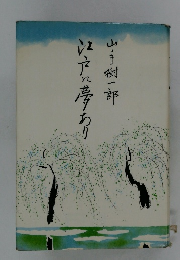 山手樹一郎
江戸に夢あり